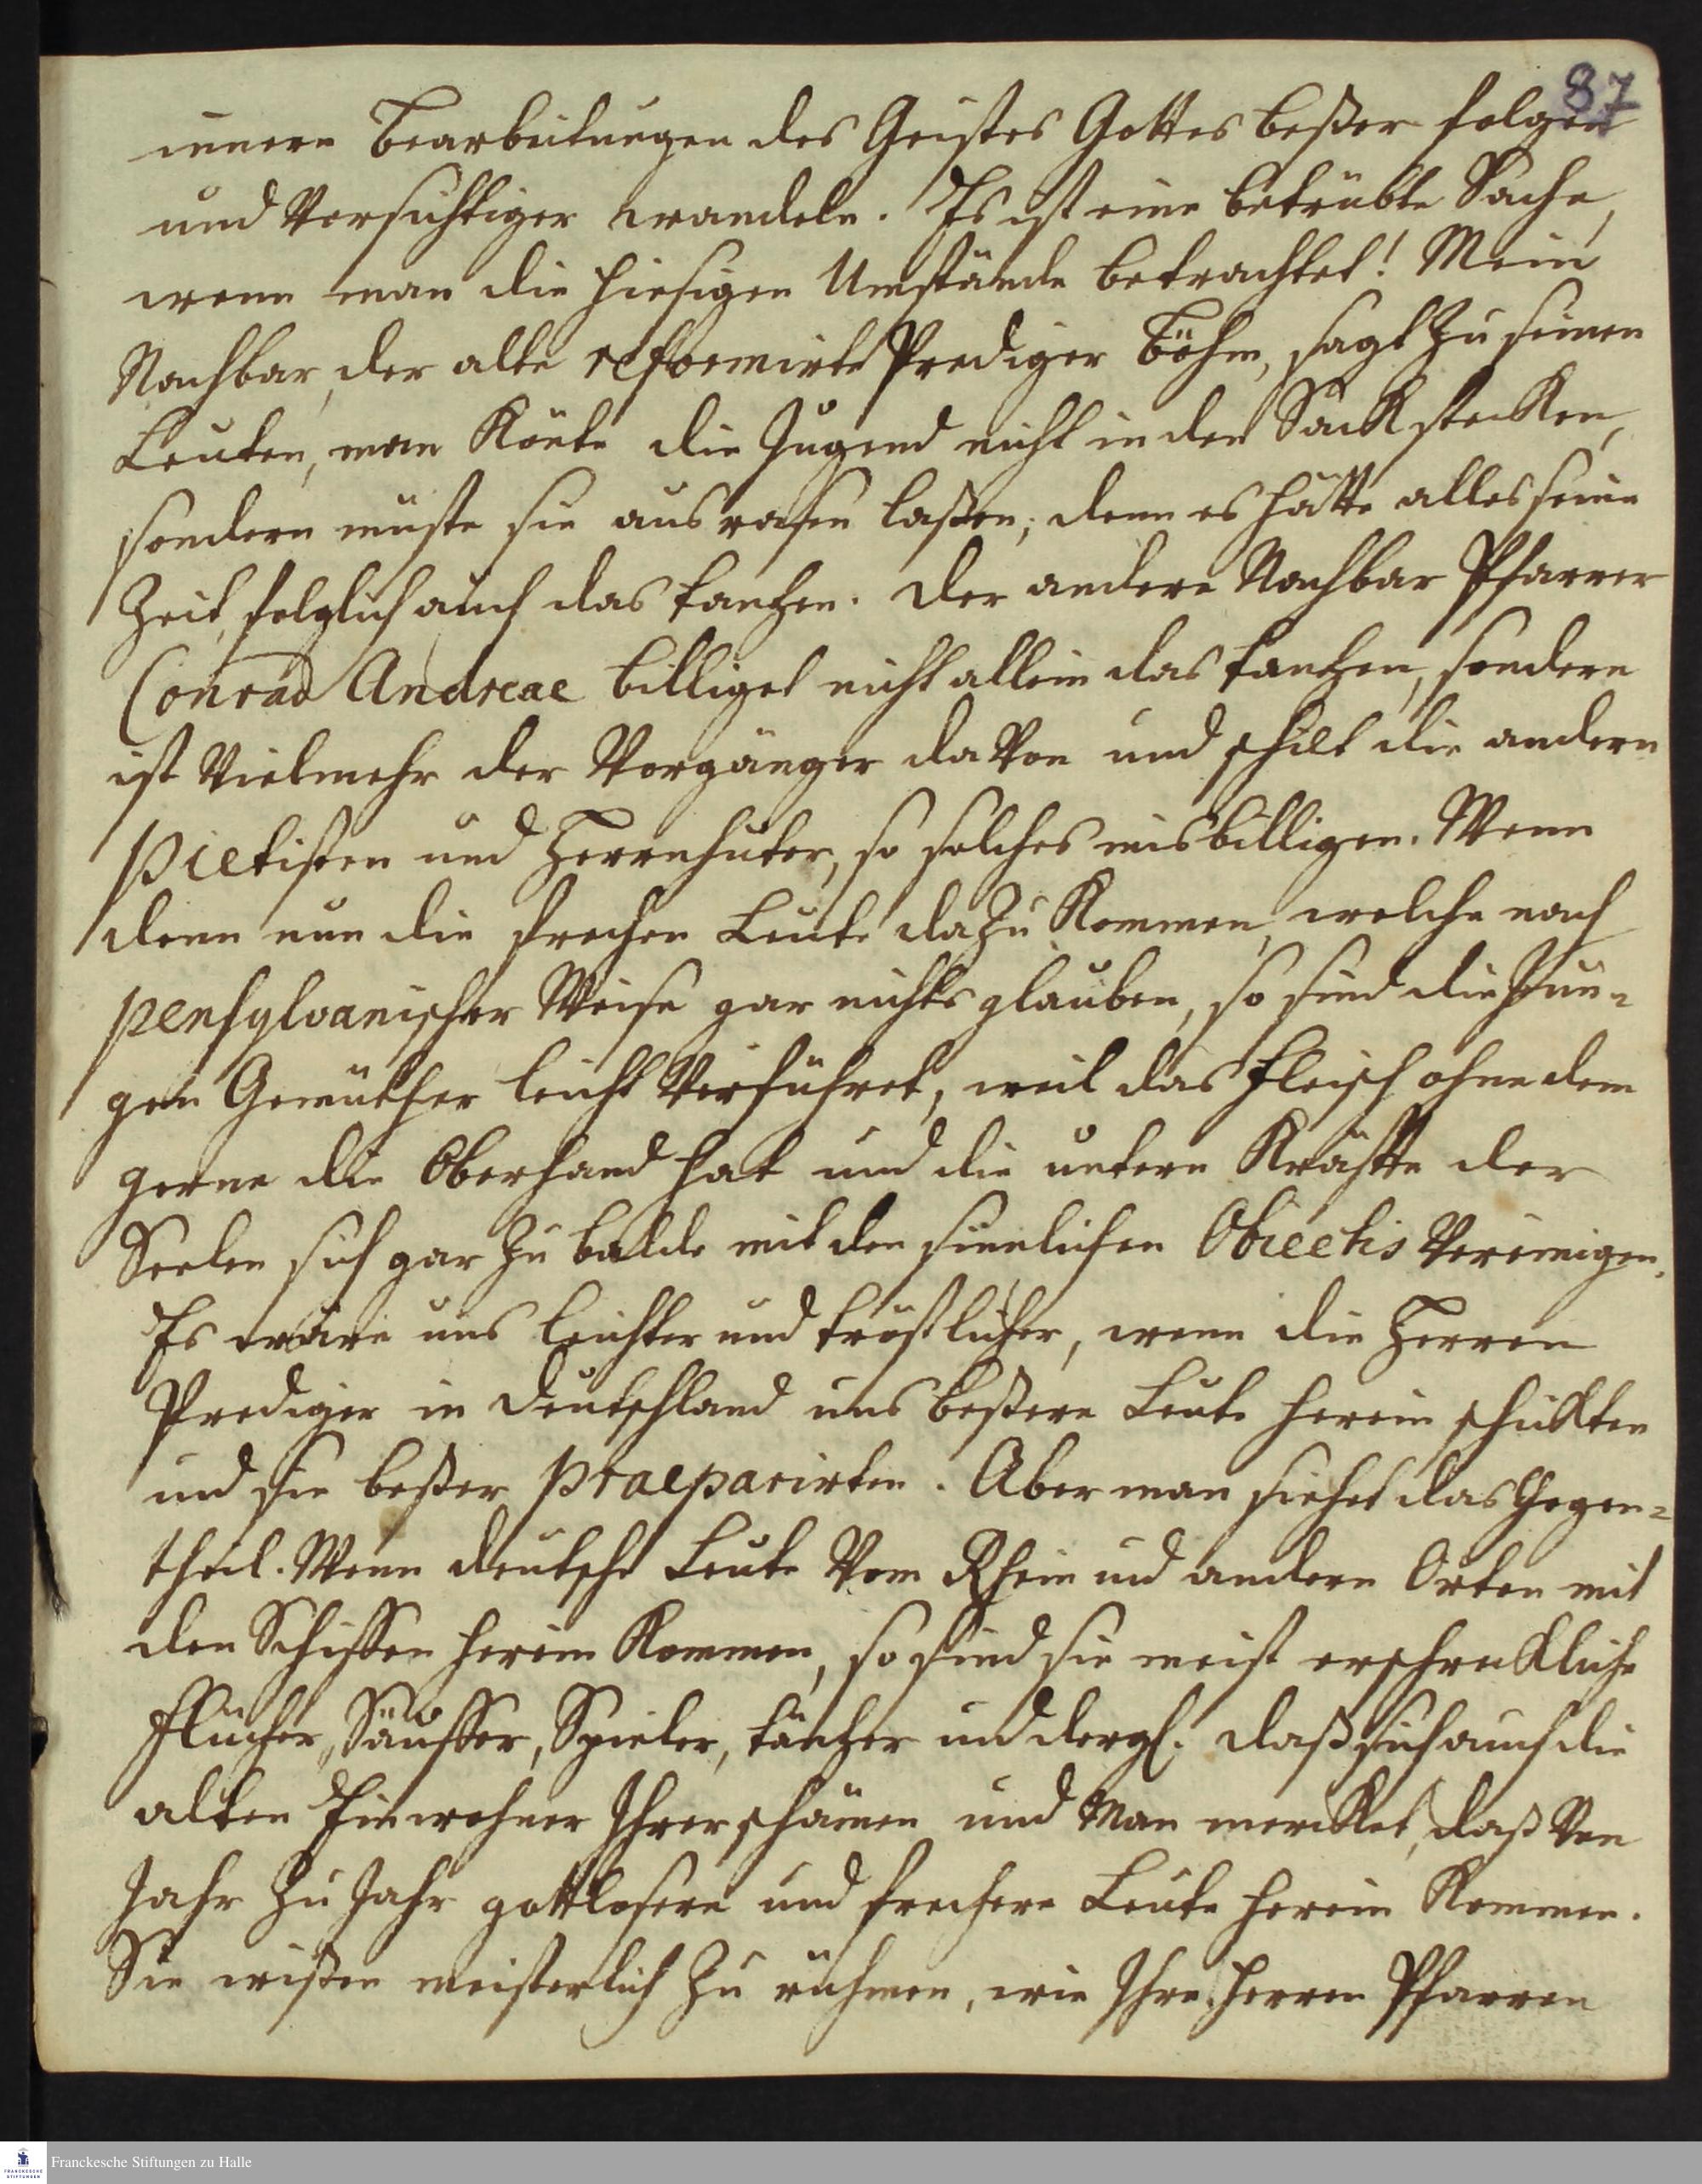 87
innern Bearbeitungen des Geistes Gottes beßer folgen
und vorsichtiger wandeln. Es ist eine betrübte Sache,
wenn man die hiesigen Umstände betrachtet! Mein
Nachbar, der alte reformirte Prediger Böhm, sagt zu seinen
Leuten, man könte die Jugend nicht in den Sack stecken,
sondern müste sie ausrasen laßen; denn es hätte alles seine
Zeit, folglich auch das tantzen. Der andere Nachbar Pfarrer
Conrad Andreae billiget nicht allein das tantzen, sondern
ist vielmehr der Vorgänger davon und schilt die andern
Pietisten und Herrnhuter, so solches misbilligen. Wenn
denn nun die frechen Leute dazu kommen, welche nach
pensylvanischer Weise gar nichts glauben, so sind die Jun-
gen Gemüther leicht verführet, weil das Fleisch ohne dem
gerne die Oberhand hat und die untern Kräffte der
Seelen sich gar zu balde mit den sinnlichen Obiectis vereinigen.
Es wäre uns leichter und tröstlicher, wenn die Herren
Prediger in Deutschland uns beßere Leute herein schickten
und sie beßer praeparirten. Aber man siehet das Gegen-
theil. Wenn deutsche Leute vom Rhein und andern Orten mit
den Schiffen herein kommen, so sind sie meist erschreckliche
Flucher, Säuffer, Spieler, täntzer und dergl. daß sich auch die
alten Einwohner Ihrer schämen und Man mercket, daß von
Jahr zu Jahr gottlosere und frechere Leute herein kommen.
Sie wißen meisterlich zu rühmen, wie Ihre Herren Pfarren
Franckesche Stiftungen zu Halle
FRANCKESCHE
STIFTUNGEN